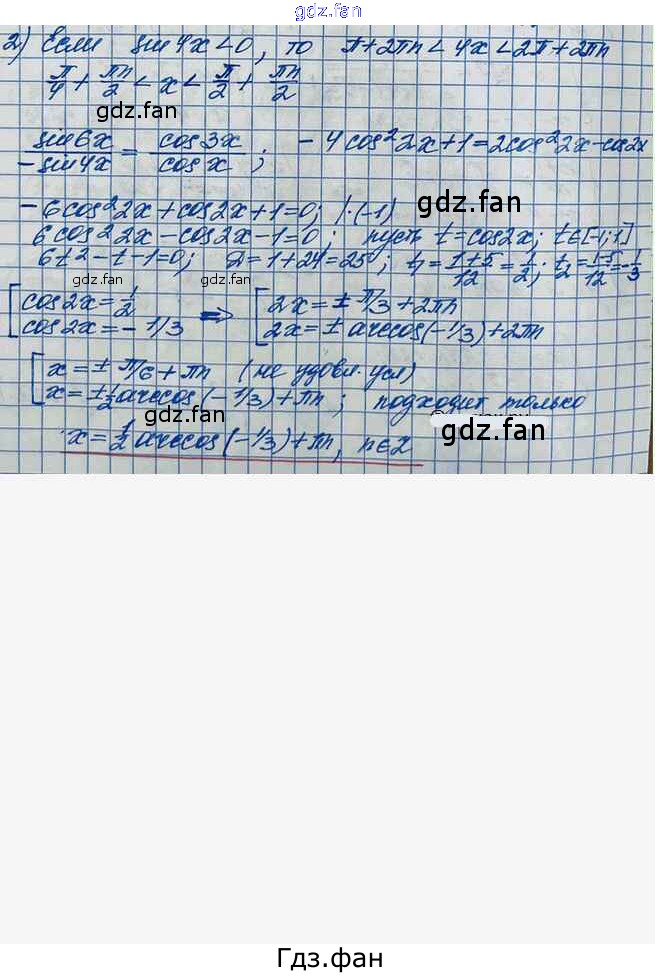 gdz.fan
2) Если sin4x<0, то π+2πn<4x<2π+2πn
π/4 + πn/2 < x < π/2 + πn/2
gdz.fan
sin6x/-sin4x = cos3x/cosx ; -4cos²2x+1=2cos²2x-cos2x
gdz.fan
-6cos²2x+cos2x+1=0; |·(-1)
6cos²2x-cos2x-1=0; пусть t=cos2x; t∈[-1;1]
6t²-t-1=0; D=1+24=25; t₁=(1+5)/12=1/2; t₂=(1-5)/12=-1/3
gdz.fan gdz.fan
[cos2x=1/2 => [2x=±π/3+2πn
cos2x=-1/3 2x=±arccos(-1/3)+2πn
[x=±π/6+πn (не удовл. усл)
x=±1/2arccos(-1/3)+πn; подходит только
gdz.fan
gdz.fan
x=1/2arccos(-1/3)+πn, n∈Z
Гдз.фан